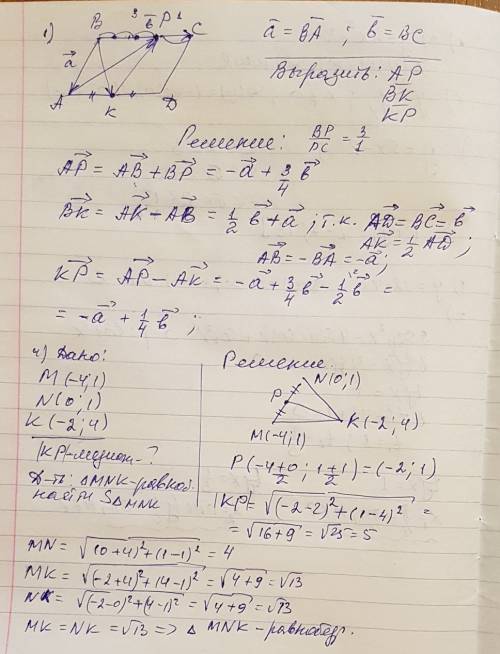 1) B 3 b̄ P 1 C
ā = B̄Ā ; b̄ = B̄C̄
a⃗
A K D
Выразить: A̅P̅
B̅K̅
K̅P̅
Решение: BP/PC = 3/1
AP⃗ = AB⃗ + BP⃗ = -a⃗ + 3/4 b⃗
BK⃗ = AK⃗ - AB⃗ = 1/2 b⃗ + a⃗ ; т.к. AD⃗ = BC⃗ = b⃗
AK⃗ = 1/2 AD⃗ ;
AB⃗ = -BA⃗ = -a⃗ ;
KP⃗ = AP⃗ - AK⃗ = -a⃗ + 3/4 b⃗ - 1/2 b⃗ =
= -a⃗ + 1/4 b⃗ ;
4) Дано:
M (-4; 1)
N (0; 1)
K (-2; 4)
|KP|-медиан-?
Д-ть: △MNK-равноб.
найти S△MNK
Решение.
N(0;1)
P
K(-2; 4)
M(-4;1)
P(-4+0/2 ; 1+1/2) = (-2; 1)
|KP| = √(-2-2)² + (1-4)² =
= √16+9 = √25 = 5
MN = √(0+4)² + (1-1)² = 4
MK = √(-2+4)² + (4-1)² = √4+9 = √13
NK = √(-2-0)² + (4-1)² = √4+9 = √13
MK = NK = √13 => △ MNK - равнобедр.